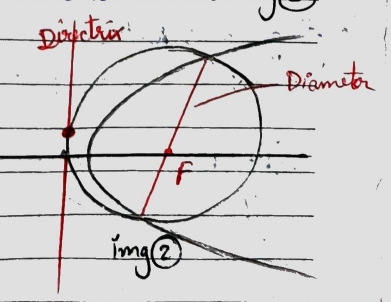 Directrix
Diameter
F
img 2